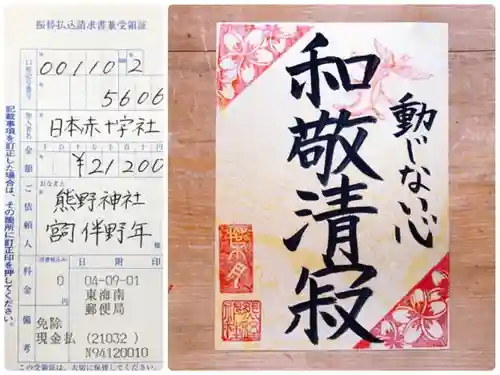 振替払込請求書兼受領証
00110 2
5606
日本赤十字社
¥21200
おなまえ
熊野神社
宮司 伴野 年 様
料金
0 円
日附印
04-09-01
東海南
郵便局
備考
免除
現金払 (21032)
N94120010
この受領証は、大切に保管してください。
記載事項を訂正した場合は、その箇所に訂正印を押してください。
和敬清寂
動じない心
葉月